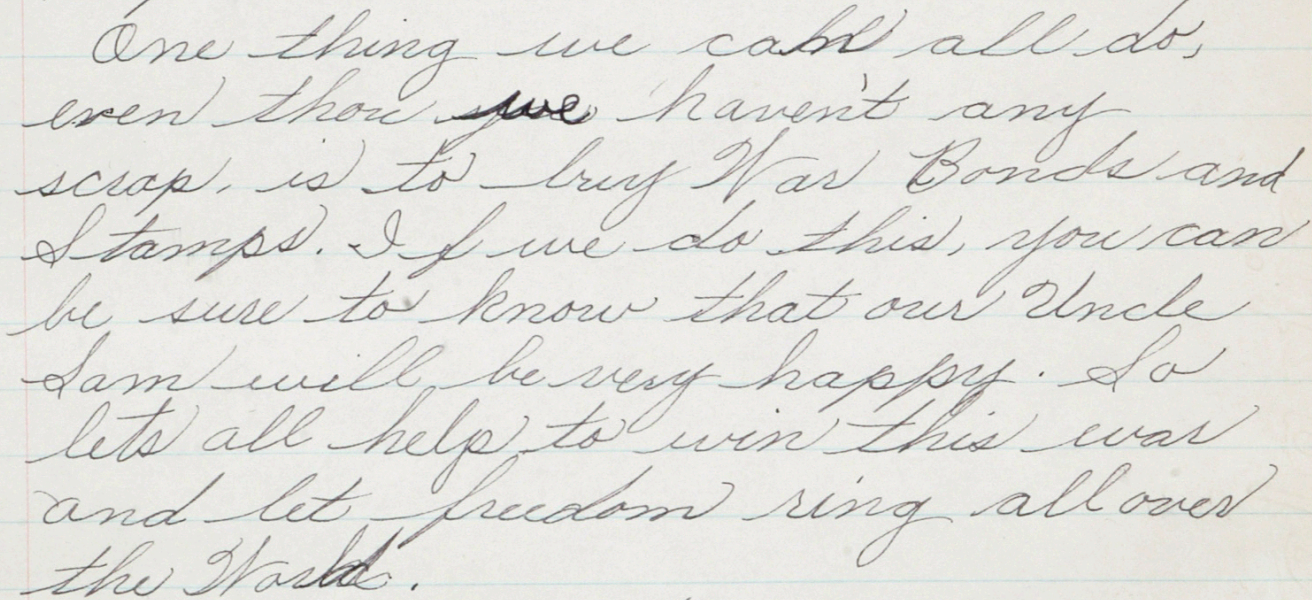 One thing we can all do,
even thou we haven't any
scrap, is to buy War Bonds and
Stamps. If we do this, you can
be sure to know that our Uncle
Sam will be very happy. So
lets all help to win this war
and let freedom ring all over
the World.